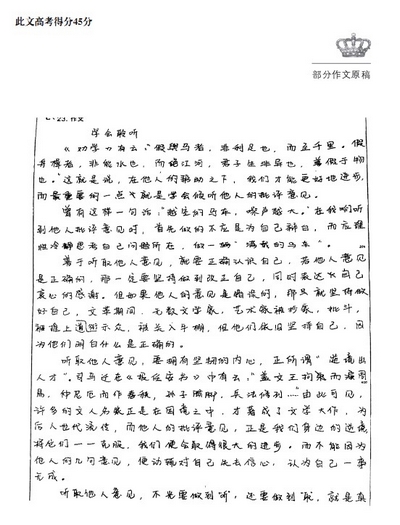 此文高考得分45分
部分作文原稿
学会聆听
《劝学》有云:"假舆马者,非利足也,而至千里。假
舟楫者,非能水也,而绝江河,君子生非异也,善假于物
也。"这就是说,在他人的帮助之下,我们才能更好地进步,
而最重要的一点就是学会倾听他人的批评意见。
曾有这样一句话:"越空的马车,噪声越大。"在我们听
到他人批评意见时,首先做的不应是为自己辩白,而应
冷静思考自己问题所在,做一辆"满载的马车"。
善于听取他人意见,就要正确认识自己,若他人意见
是正确的,那一定要坚持做到改正自己,同时表达出自己
衷心的感谢。但如果他人的意见是错误的,那只就坚持做
好自己,文革期间,无数文学家、艺术家被抄家、批斗,
示众,被关入牛棚,但他们依旧坚持自己,因
为他们明白什么是正确的。
听取他人意见,要拥有坚韧的内心,正所谓"逆境出
人才"。司马迁在《报任安书》中有云:"盖文王拘而演周
易,仲尼厄而作春秋,孙子膑脚,兵法修列……"由此可见,
许多的文人名家正是在困境之中,才著成了文学大作,为
后人世代流传,而他人的批评意见,正是我们身边的逆境,
将它们一一克服,我们便会取得很大的进步。而不能因为
他人的几句意见,便动辄对自己失去信心,认为自己一事
无成。
听取他人意见,不光要做到"听",还要做到"取",就是